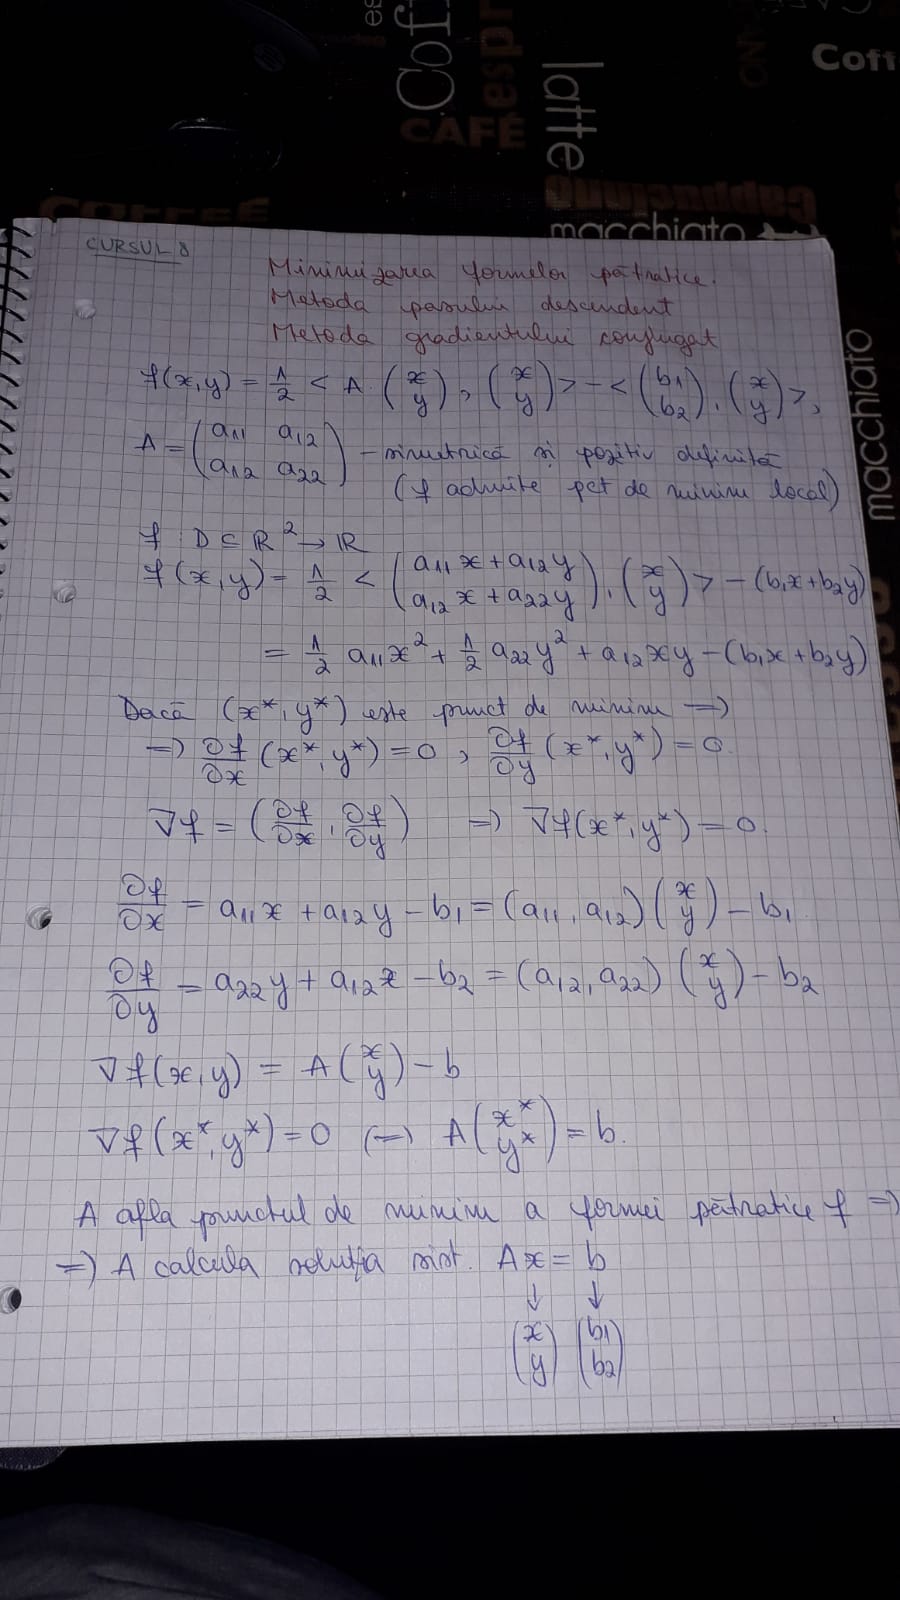 es
Coff
espr
latte
ON
Coff
CAFÉ
cappuccino
COFFEE
macchiato
macchiato
CURSUL 8
Minimizarea formelor pătratice.
Metoda pasului descendent
Metoda gradientului conjugat
f(x,y) = 1/2 < A · (x y), (x y) > - < (b1 b2), (x y) >,
A = (a11 a12 a12 a22) - simetrică și pozitiv definită
(f admite pct de minim local)
f D ⊆ ℝ² → ℝ
f(x,y) = 1/2 < (a11x + a12y a12x + a22y), (x y) > - (b1x + b2y)
= 1/2 a11x² + 1/2 a22y² + a12xy - (b1x + b2y)
Dacă (x*, y*) este punct de minim =>
=> ∂f/∂x (x*, y*) = 0, ∂f/∂y (x*, y*) = 0.
∇f = (∂f/∂x, ∂f/∂y) => ∇f(x*, y*) = 0.
∂f/∂x = a11x + a12y - b1 = (a11, a12) (x y) - b1
∂f/∂y = a22y + a12x - b2 = (a12, a22) (x y) - b2
∇f(x,y) = A (x y) - b
∇f(x*, y*) = 0 (=) A (x* y*) = b.
A afla punctul de minim a formei pătratice f =>
=> A calcula soluția sist. Ax = b
↓ ↓
(x y) (b1 b2)